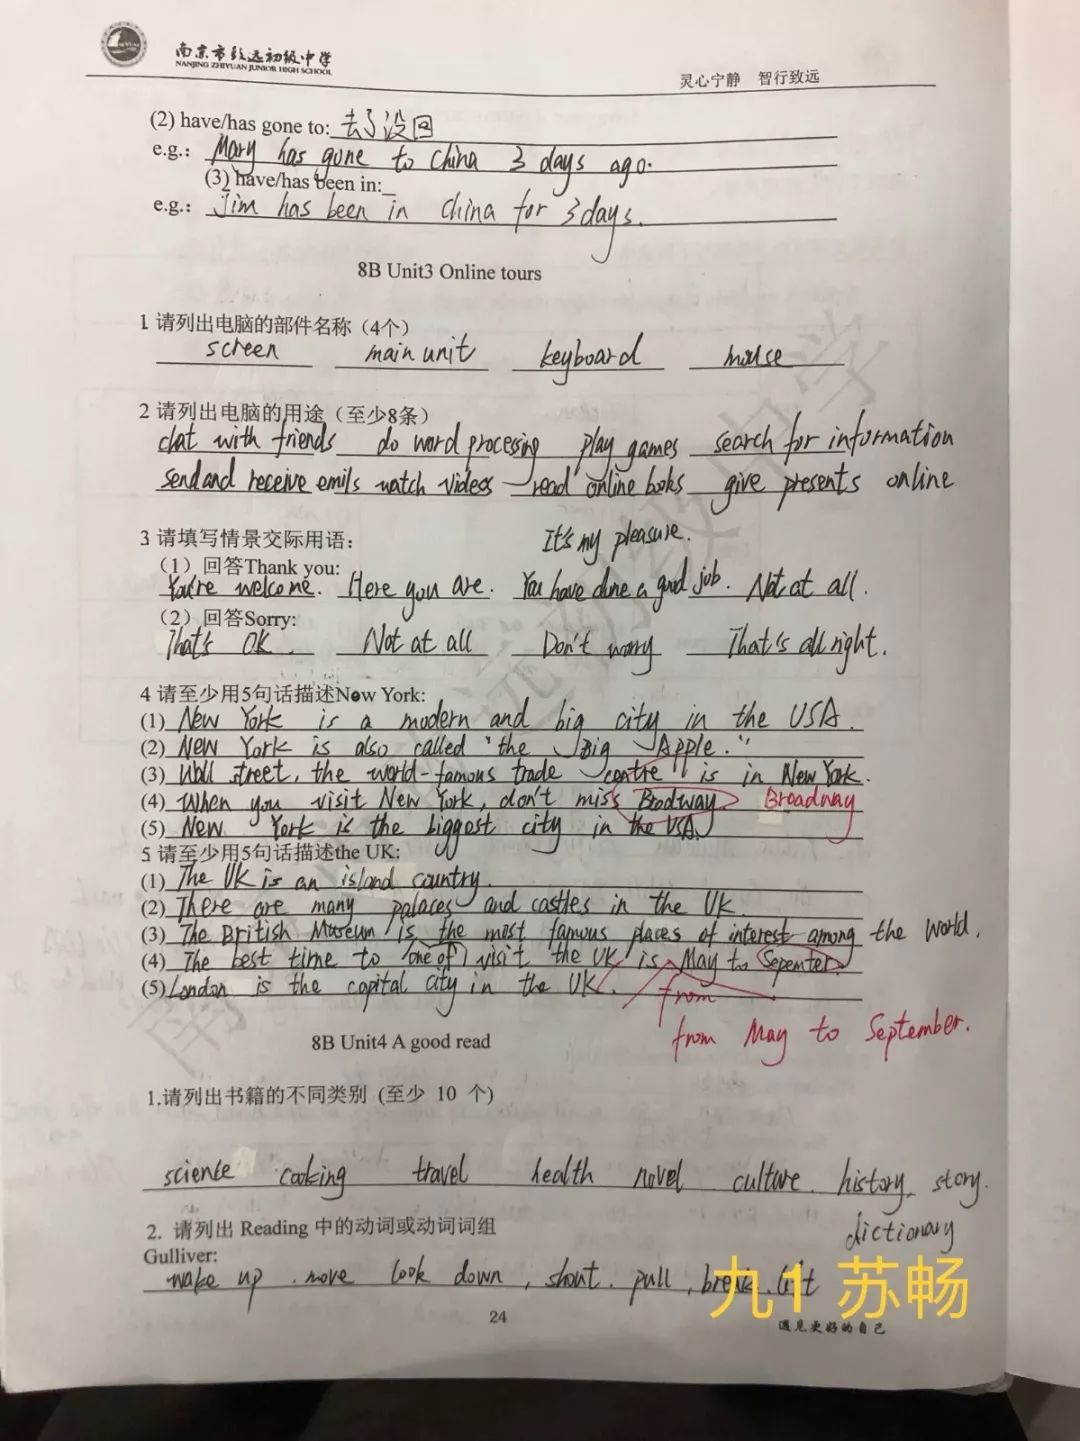 南京市致远初级中学
NANJING ZHIYUAN JUNIOR HIGH SCHOOL
灵心宁静 智行致远
(2) have/has gone to: 去了没回
e.g.: Mary has gone to China 3 days ago.
(3) have/has been in:_
e.g.: Jim has been in China for 3 days.
8B Unit3 Online tours
1 请列出电脑的部件名称（4个）
screen main unit keyboard mouse
2 请列出电脑的用途（至少8条）
chat with friends do word processing play games search for information
send and receive emils watch videos read online books give presents online
3 请填写情景交际用语： It's my pleasure.
（1）回答Thank you:
You're welcome. Here you are. You have done a good job. Not at all.
（2）回答Sorry:
That's OK. Not at all Don't worry That's all right.
4 请至少用5句话描述New York:
(1) New York is a modern and big city in the USA.
(2) New York is also called "the Big Apple."
(3) Wall street, the world-famous trade centre is in New York.
(4) When you visit New York, don't miss Brodway. Broadway
(5) New York is the biggest city in the USA.
5 请至少用5句话描述the UK:
(1) The UK is an island country.
(2) There are many palaces and castles in the UK.
(3) The British Museum is the most famous places of interest among the world.
(4) The best time to (one of) visit the UK is May to Sepemter.
(5) London is the capital city in the UK.
from
from May to September.
8B Unit4 A good read
1.请列出书籍的不同类别 (至少 10 个)
science cooking travel health novel culture. history. story.
dictionary
2. 请列出 Reading 中的动词或动词词组
Gulliver:
wake up . move look down , shout . pull , break . lift
九1 苏畅
24
遇见更好的自己